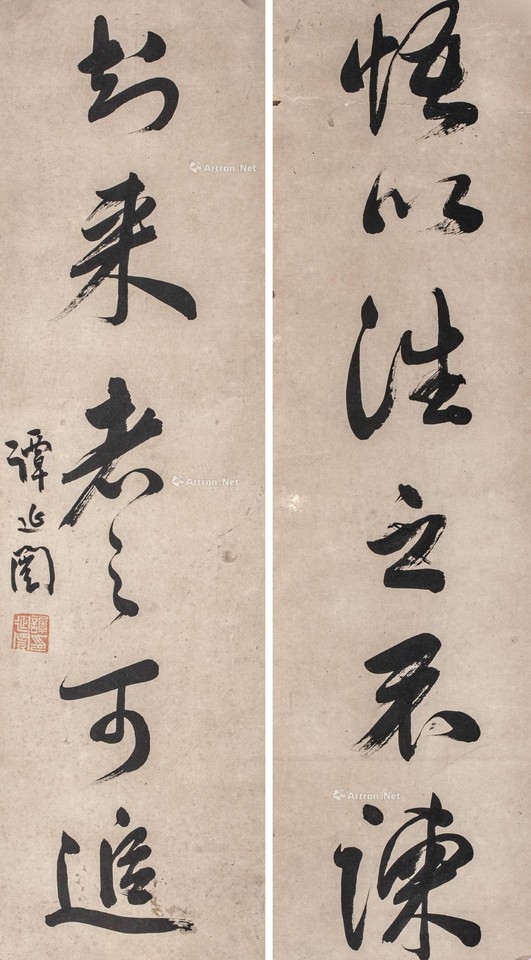 悟以往之不諫
知来者之可追
譚延闓
Artron.Net
Artron.Net
Artron.Net